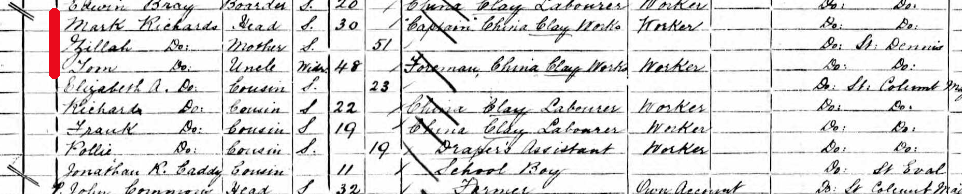 Edwin Bray Boarder S. 20 China Clay Labourer Worker Do: Do:
Mark Richards Head S. 30 Captain, China Clay Works Worker Do: Do:
Zillah Do: Mother S. 51 Do: St. Dennis
Tom Do: Uncle Widr 48 Foreman, China Clay Works Worker Do: Do:
Elizabeth A. Do: Cousin S. 23 Do: St. Columb
Richard Do: Cousin S. 22 China Clay Labourer Worker Do: Do:
Frank Do: Cousin S. 19 China Clay Labourer Worker Do: Do:
Pollie Do: Cousin S. 19 Drapers Assistant Worker Do: Do:
Jonathan R. Caddy Cousin 11 School Boy Do: St Eval
John Head S 32 Farmer Own Account Do: St Columb